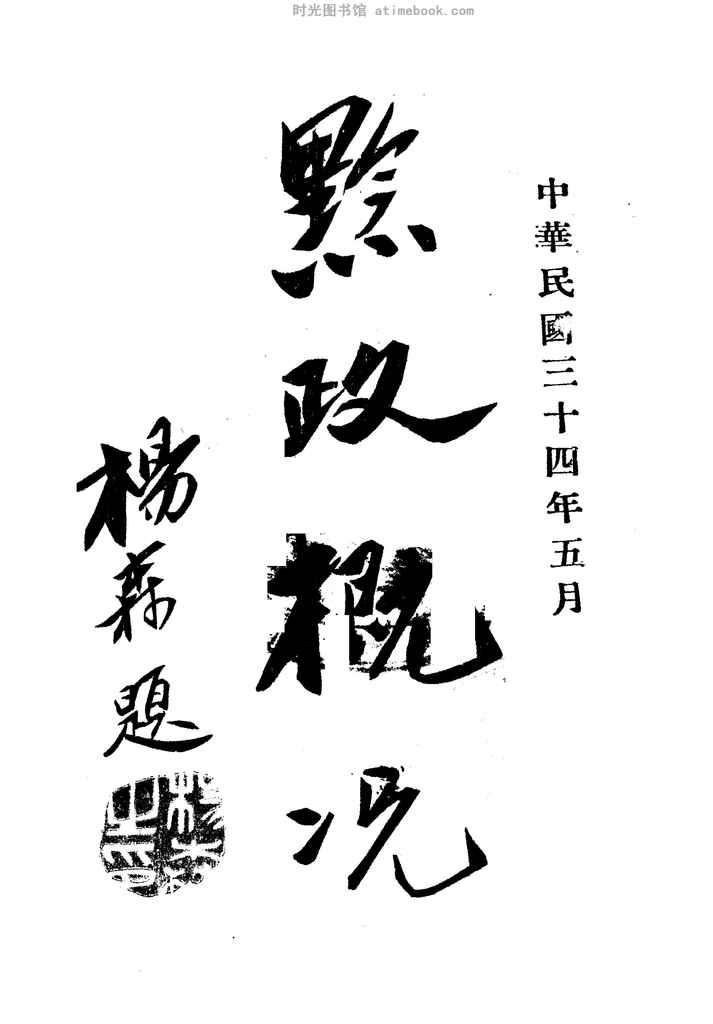 时光图书馆 atimebook.com
中華民國三十四年五月
黔政概况
楊森題